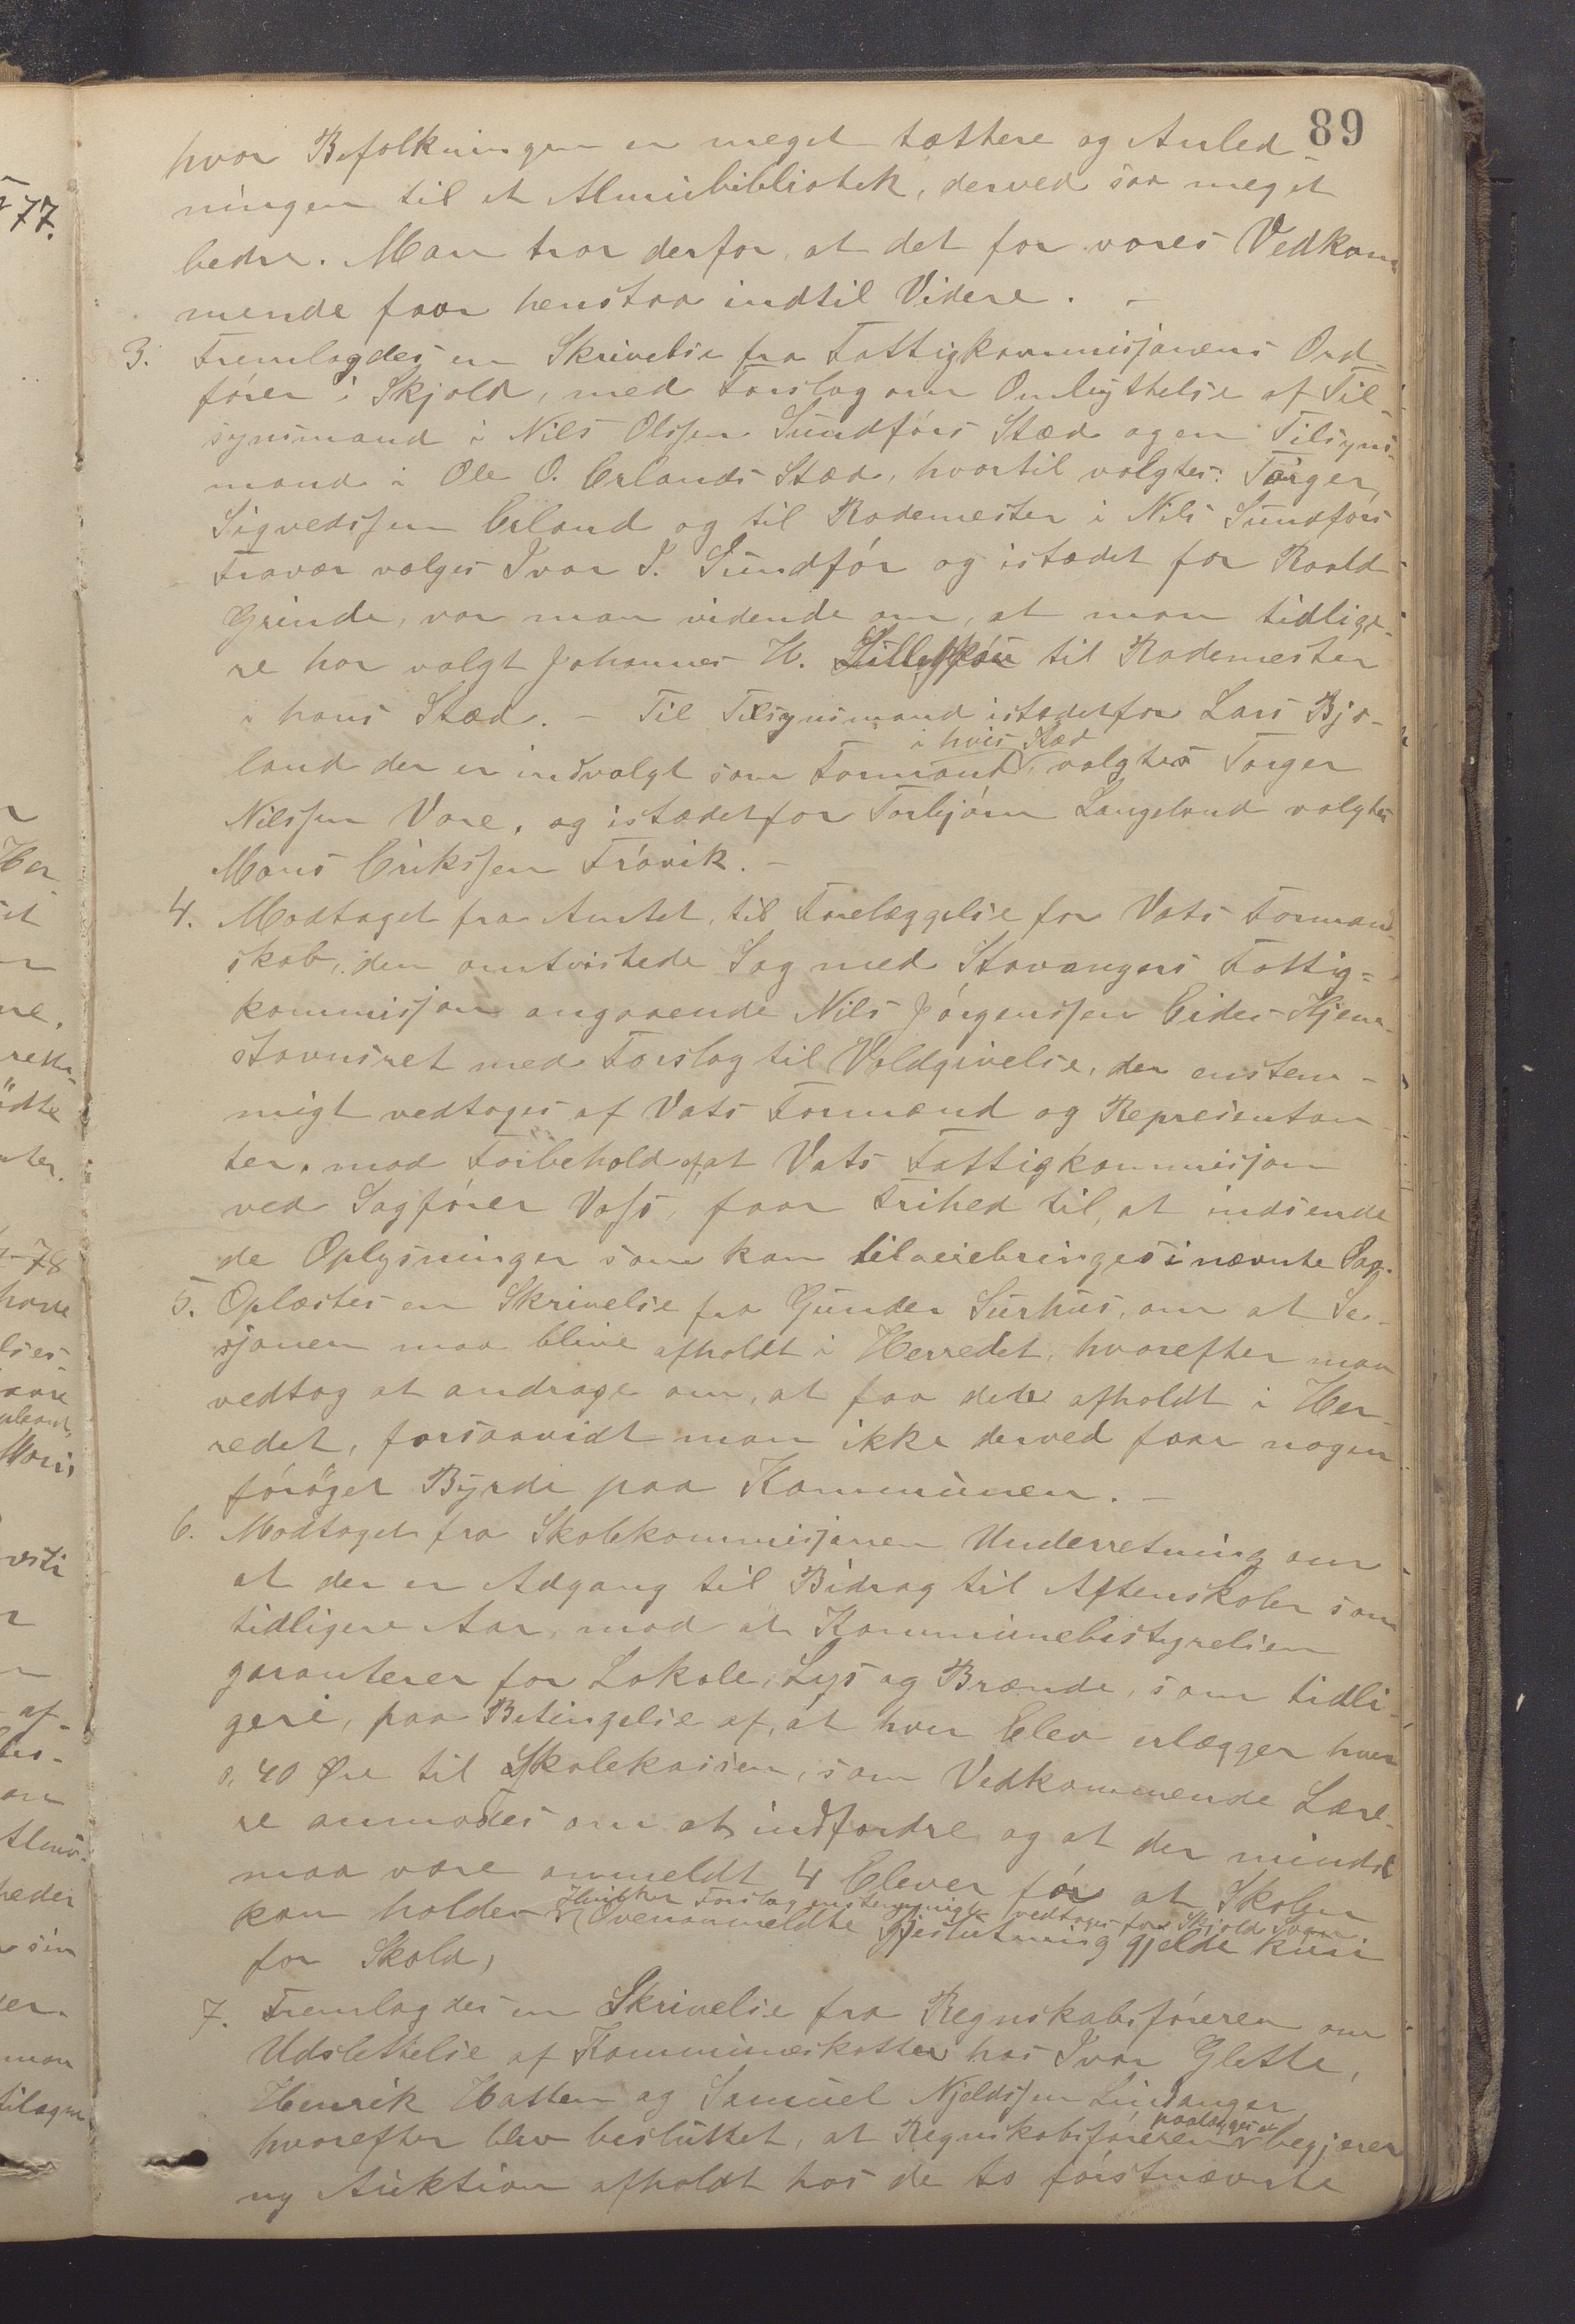 89
hvor Befolkningen er meget tættere og Anled-
ningen til et Almuebibliotek, derved saa meget
bedre. Man tror derfor, at det for vores Vedkom
mende faar henstaa indtil Videre. -
3. Fremlagdes en Skrivelse fra Fattigkommissjonens Ord-
fører i Skjold, med Forslag om Ombyttelse af Til-
synsmand i Nils Olssen Sundførs Stæd og en Tilsyns-
mand i Ole O. Erlands Stæd, hvortil valgtes: Torger
Sigvedssen Erland og til Rodemester i Nils Sundførs
Fravær valges Ivar I. Sundfør og istædet for Roald
Grinde, var man vidende om, at man tidlige-
re har valgt Johannes H. til Rodemester
i hans Stæd. - Til Tilsynsmand istædetfor Lars Bjo-
land der er indvalgt som Formand i hvis Stæd valgtes Torger
Nilssen Vare, og istædetfor Torbjørn Langeland valgtes
Mons Erikssen Frøvik. -
4. Modtaget fra Amtet, til Forelæggelse for Vats Formand-
skab, den omtvistede Sag med Stavangers Fattig=
kommissjon angaaende Nils Jørgenssen Eides Hjem-
stavnsret med Forslag til Voldgivelse, der enstem-
migt vedtoges af Vats Formænd og Representan-
ter, mod Forbehold af, at Vats Fattigkommissjon
ved Sagfører Voss, faar Frihed til, at indsende
de Oplysninger som kan tilveiebringes i nævnte Sag.
5. Oplæstes en Skrivelse fra Gunder Surhus, om at Se-
sjonen maa blive afholdt i Herredet, hvorefter man
vedtog at andrage om, at faa dete afholdt i Her-
redet, forsaavidt man ikke derved faar nogen
førøget Byrde paa Kommunen. -
6. Modtaget fra Skolekommissjonen Underretning om
at der er Adgang til Bidrag til Aftenskoler som
tidligere Aar, mod at Kommunebestyrelsen
garanterer for Lokale, Lys og Brænde, som tidli-
gere, paa Betingelse af, at hver Elev erlægger hver
0,40 Øre til Skolekassen, som Vedkommende Lære-
re anmodes om at indfordre og at der mindst
maa være anmeldt 4 Elever før at Skolen
kan holdes Hvilket Forslag enstemmigt vedtoges for Skjold Sogn
Ovenanmeldte Beslutning gjelde kuni
for Skold,
7. Fremlagdes en Skrivelse fra Regnskabsføreren om
Udslettelse af Kommuneskatter hos Ivar Glette,
Henrik Hatten og Samuel Njeldssen Lindanger
hvorefter blev besluttet, at Regnskabsføreren paalægges at begjærer
ny Auktion afholdt hos de to førstnævnte